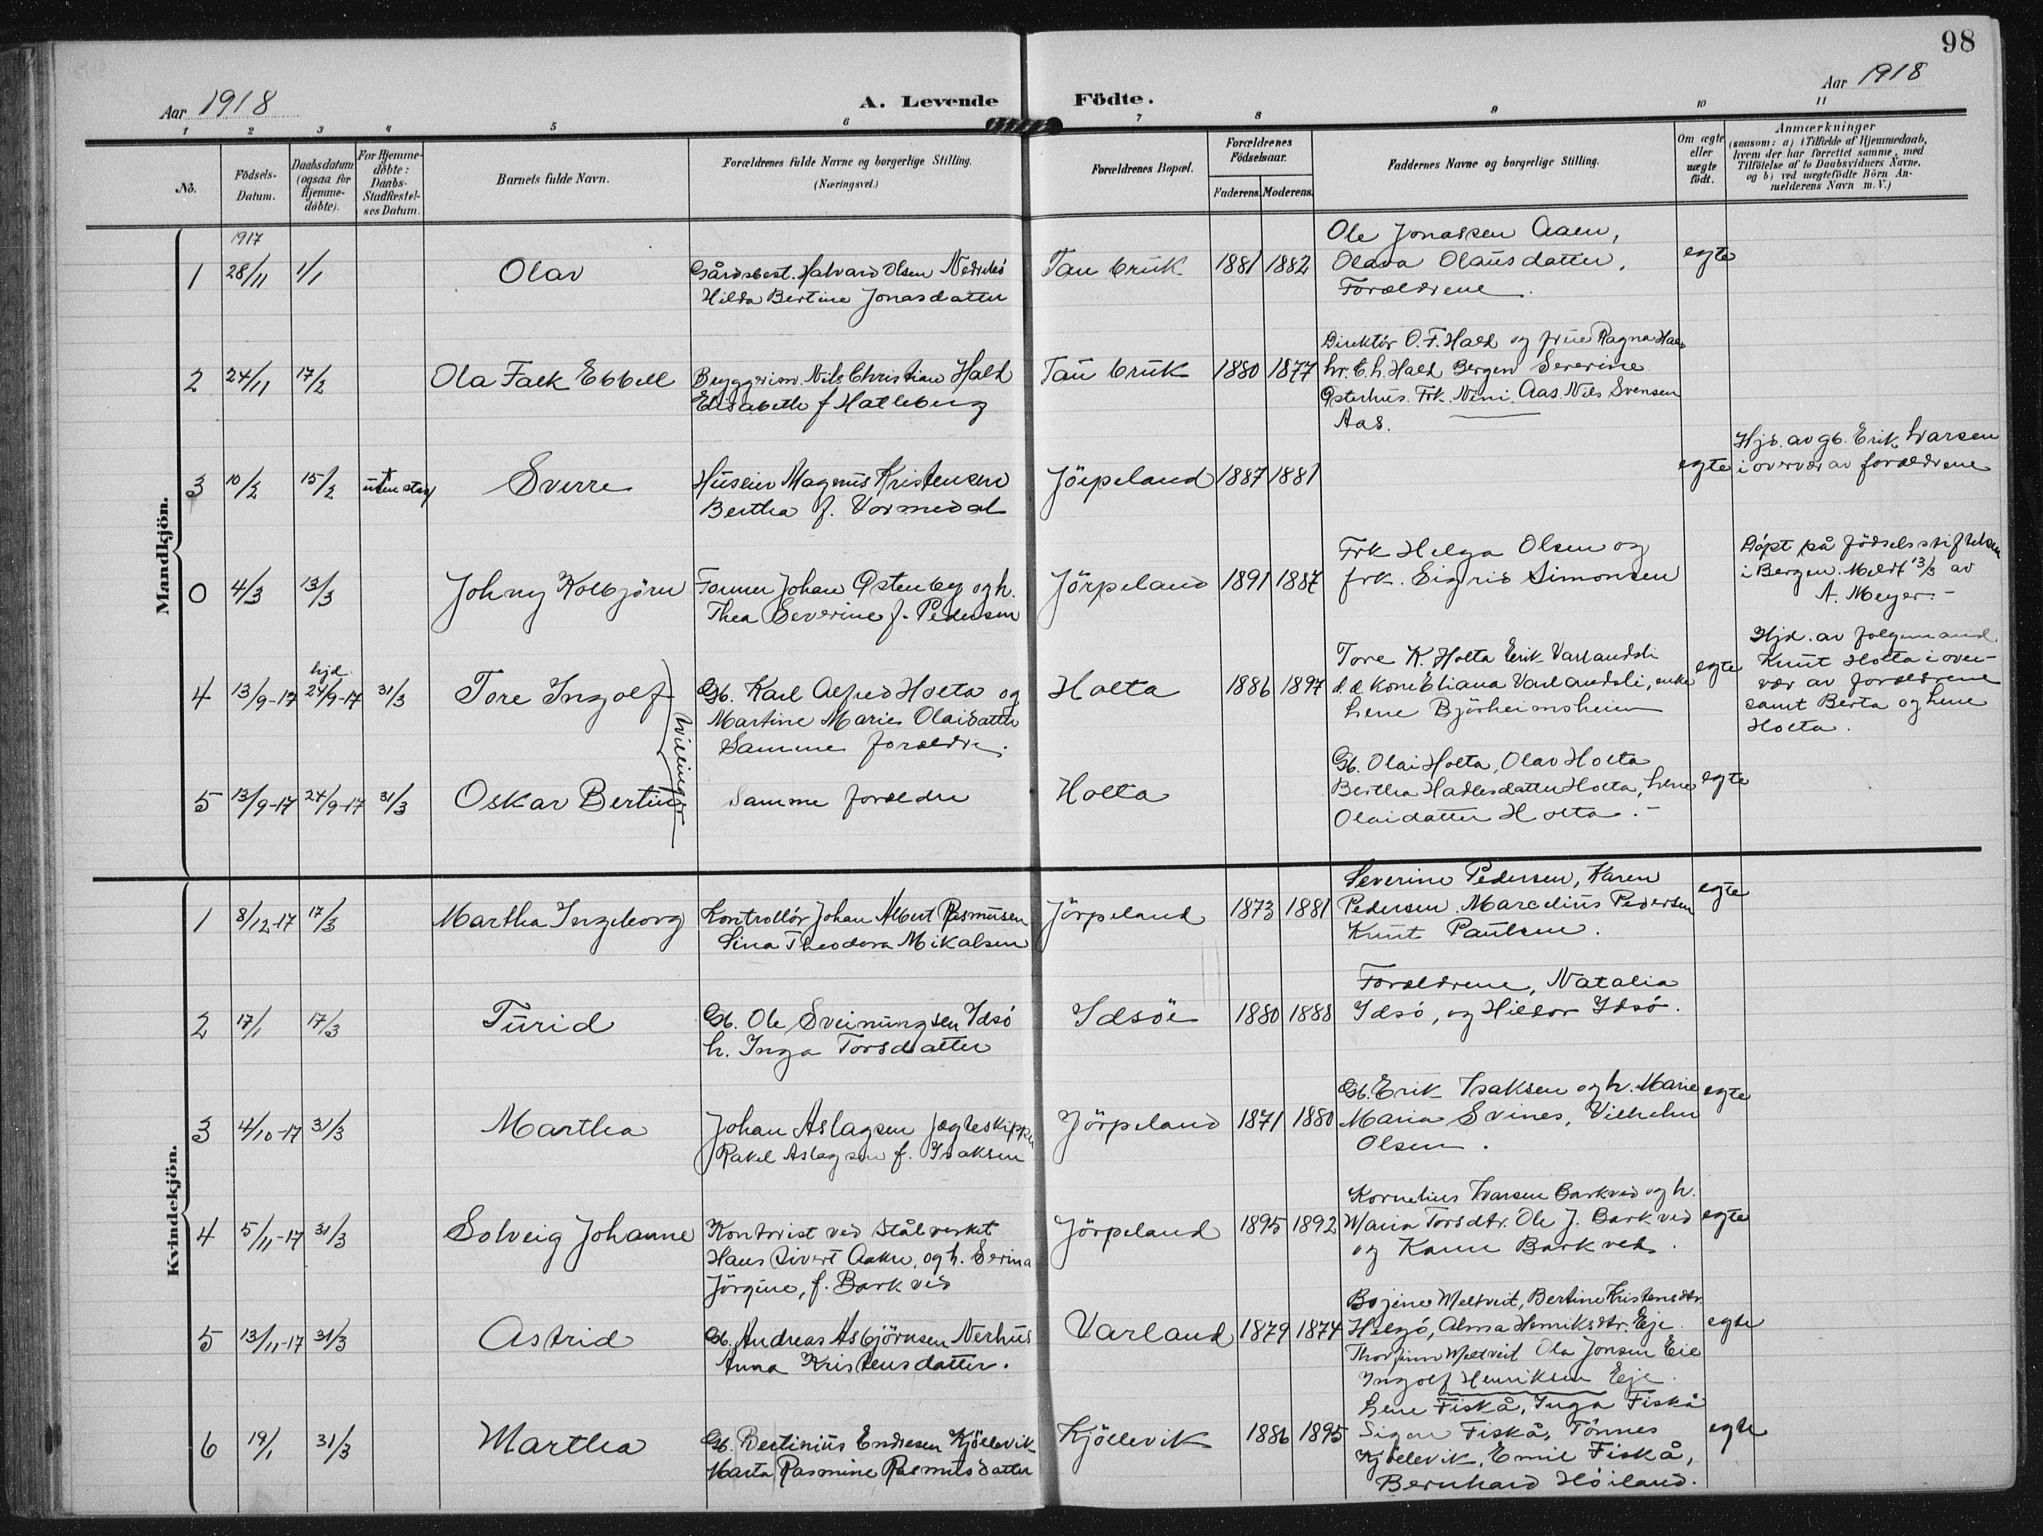 98
Aar 1918
A. Levende Födte.
Aar 1918
1 2 3 4 5 6 7 8 9 10 11
No.
Födsels-
Datum.
Daabsdatum
(ogsaa for
Hjemme-
döbte).
For Hjemme-
döbte:
Daabs-
Stadfæstel-
ses Datum.
Barnets fulde Navn.
Forældrenes fulde Navne og borgerlige Stilling.
(Næringsvei.)
Forældrenes Bopæl.
Forældrenes
Födselsaar.
Faderens. Moderens.
Faddernes Navne og borgerlige Stilling.
Om ægte
eller
uægte
födt.
Anmærkninger
(saasom: a) i Tilfælde af Hjemmedaab,
hvem der har forrettet samme, med
Tilföielse af to Daabsvidners Navne,
og b) ved uægtefödte Börn An-
melderens Navn m. V.)
Mandkjön.
1917
1 28/11 1/1 Olav
Gårdsbest. Halvard Olsen Nedrebö
Hilda Bertine Jonasdatter
Tau bruk 1881 1882
Ole Jonassen Aaen,
Olava Olausdatter,
Forældrene.
egte
2 24/11 17/2 Ola Falk Ebbell
Bryggerim. Nils Christian Hald
Elisabeth f Hatleberg
Tau bruk 1880 1877
Direktör O. F. Hald og frue Ragna Hald
hr. C. h. Hald Bergen Severine
Østerhus. Frk. Nini Aas. Nils Svensen
Aas.
3 10/2 15/2 uten stadf Sverre
Huseier Magnus Kristensen
Bertha f. Vormedal
Jörpeland 1887 1881
egte
Hjd. av gb. Erik Ivarsen
i overvær av forældrene
0 4/3 13/3 Johny Kolbjörn
Former Johan Østenby og h.
Thea Severine f. Pedersen
Jörpeland 1891 1887
Frk Helga Olsen og
frk. Sigrid Simonsen
Döpt på födselsstiftelsen
i Bergen. Meldt 13/3 av
A. Meyer. -
4 13/9-17 hjd. 24/9-17 31/3 Tore Ingolf
Gb. Karl Alfred Holta og
Martine Marie Olaidatter
Samme forældre.
Holta 1886 1897
Tore K. Holta Erik Varlandsli
d.æ kone Eliana Varlandsli, enke
Lene Björheimsheien
egte
Hjd. av folgemand
Knut Holta i over-
vær av forældrene
samt Berta og Lene
Holta.
Tvillinger
5 13/9-17 24/9-17 31/3 Oskar Bertin
Samme forældre
Holta
Gb. Olai Holta, Olav Holta
Bertha Hadlesdatter Holta, Lene
Olaidatter Holta. -
egte
Kvindekjön.
1 8/12-17 17/3 Martha Ingeborg
Kontrollör Johan Albert Rasmusen
Sina Theodora Mikalsen
Jörpeland 1873 1881
Severine Pedersen, Karen
Pedersen, Marcelius Pedersen
Knut Paulsen.
egte
2 17/1 17/3 Turid
Gb. Ole Sveinungsen Idsö
h. Inga Torsdatter
Idsöe 1880 1888
Forældrene, Natalia
Idsö, og Hildor Idsö.
3 4/10-17 31/3 Martha
Johan Aslagsen Jægteskipper
Rakel Aslagsen f. Isaksen
Jörpeland 1871 1880
Gb. Erik Isaksen og h. Marie
Maria Svines, Vilhelm
Olsen.
egte
4 5/11-17 31/3 Solveig Johanne
Kontorist ved Stålverket
Hans Sivert Aaker, og h. Serina
Jörgine, f. Barkved
Jörpeland 1895 1892
Kornelius Ivarsen Barkved og h.
Maria Torsdtr. Ole J. Barkved
og Karen Barkved.
egte
5 13/11-17 31/3 Astrid
Gb. Andreas Asbjörnsen Nerhus
Anna Kristensdatter.
Varland 1879 1874
Bojine Meltveit, Bertine Kristensdtr.
Helgö, Alma Henriksdtr. Eje.
Thorfinn Meltveit Ola Jonsen Eie
Ingolf Henriksen Eje.
egte
6 19/1 31/3 Martha
Gb. Bertinius Endresen Kjöllevik
Marta Rasmine Rasmusdatter
Kjöllevik 1886 1895
Lene Fiskå, Inga Fiskå
Signe Fiskå, Tönnes
Kjöllevik, Emil Fiskå,
Bernhard Höiland.
egte